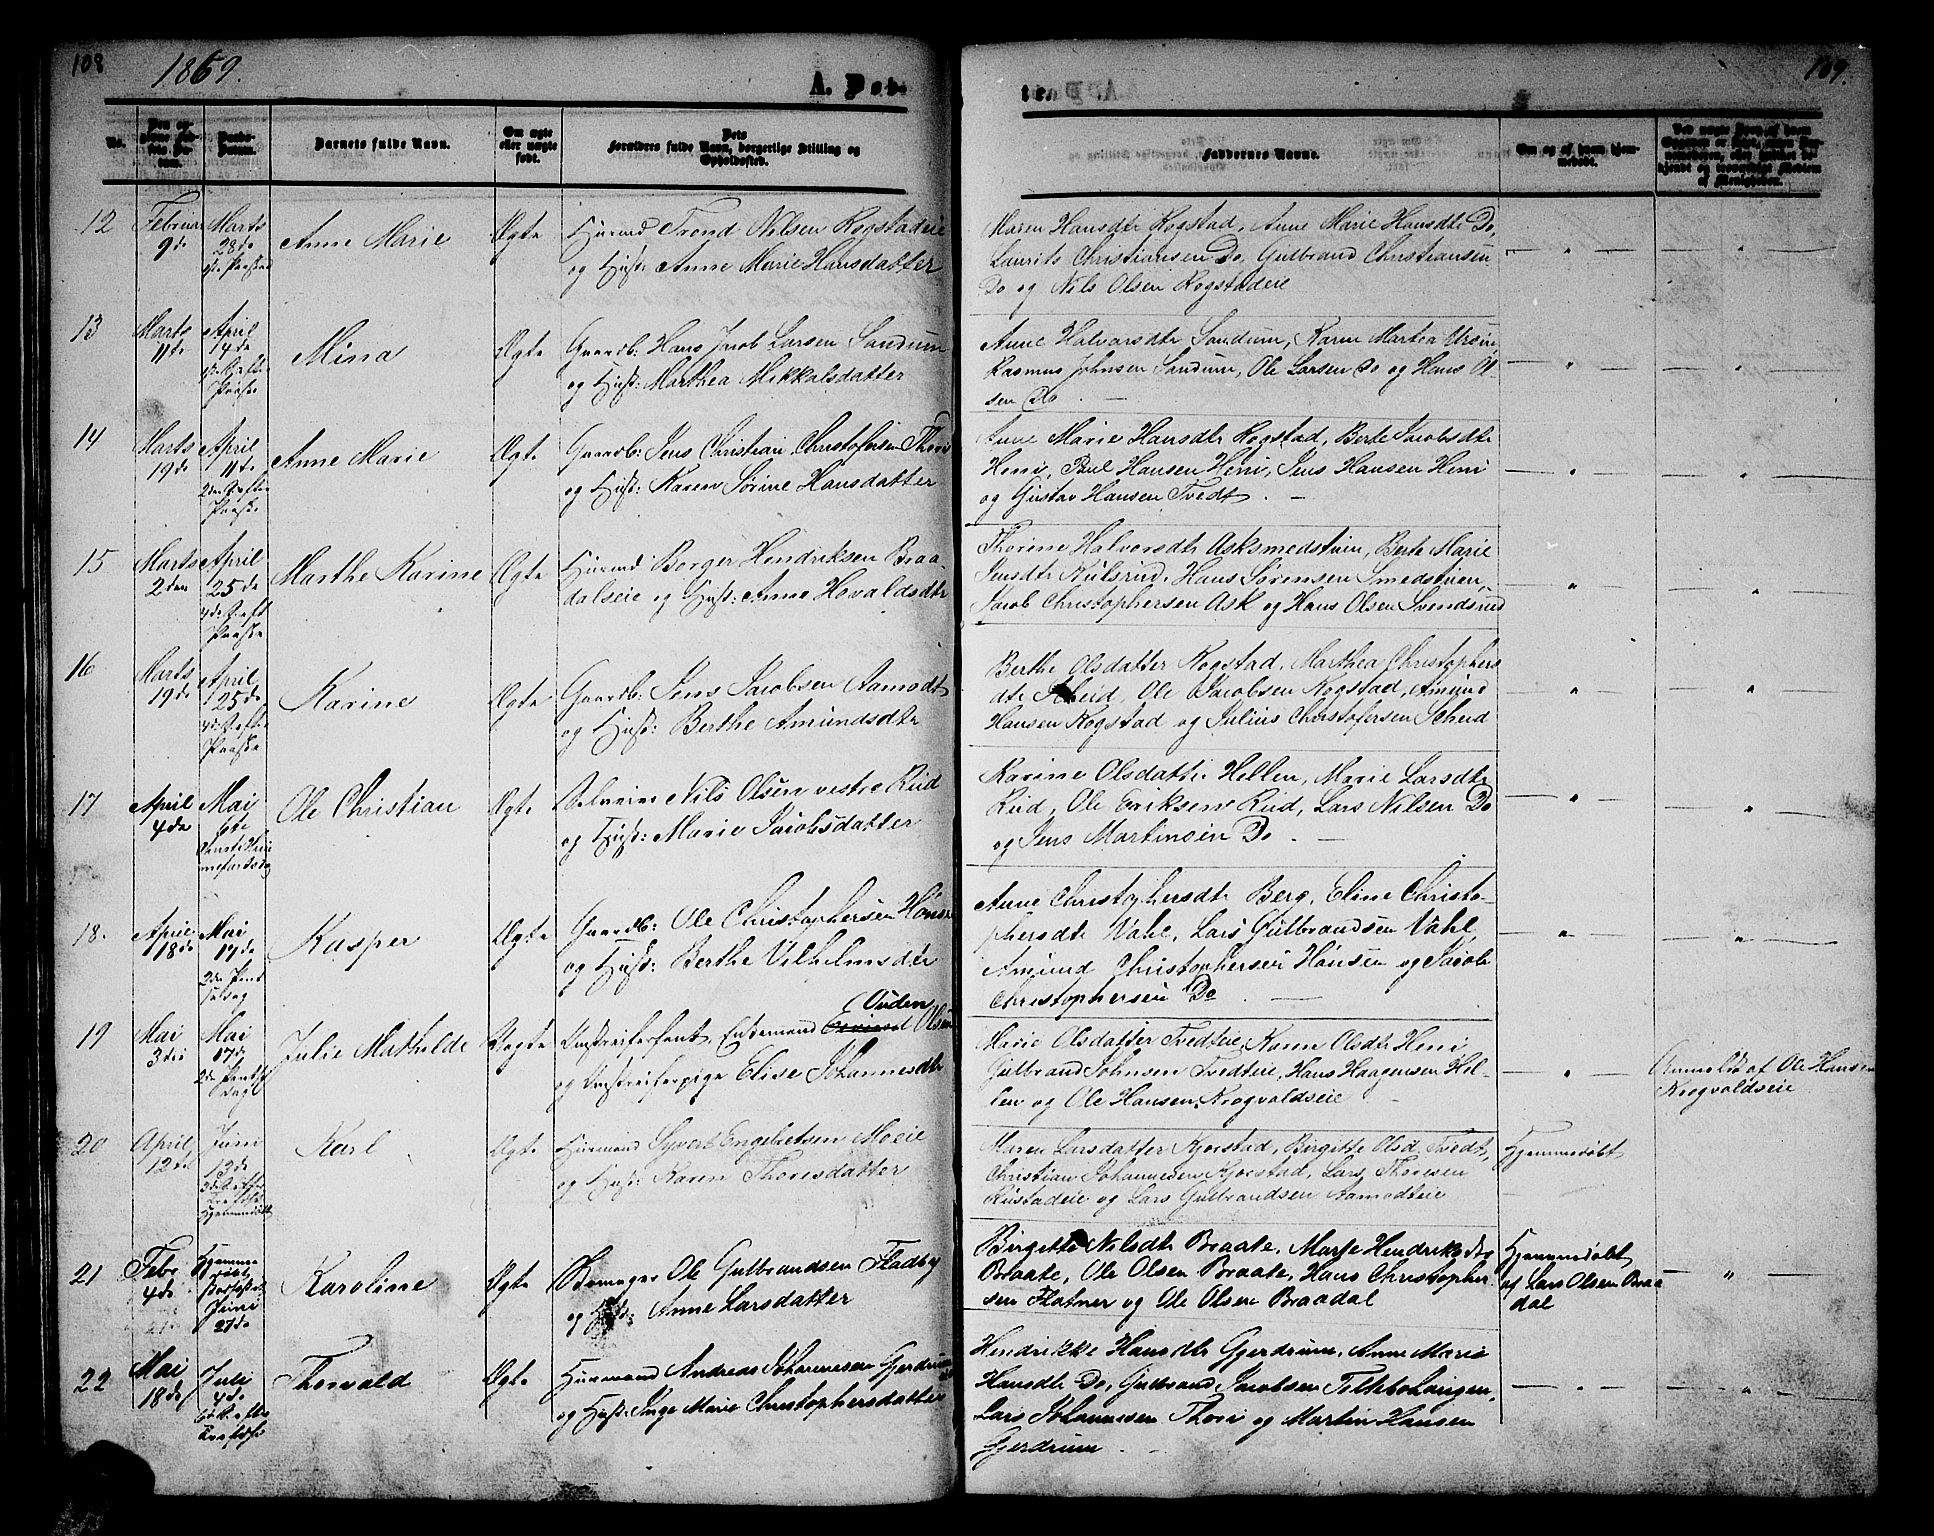 108
1869.
A. Pøb-
No.
Barnets fulde Navn.
Om ægte eller uægte født.
Forældres fulde Navn, borgerlige Stilling og Opholdssted.
12
Februar 9de
Marts 28de
Anne Marie
Ægte
Huusmd Trond Nilsen Kogstadeie
og Hust: Anne Marie Hansdatter
13
Marts 11te
April 4de
Mina
Ægte
Gaardb: Hans Jacob Larsen Sandum
og Hust: Marthea Mikkalsdatter
14
Marts 19de
April 11te
Anne Marie
Ægte
Gaardb: Jens Christian Christofersen
og Hust: Karen Sørine Hansdatter
15
Marts 2den
April 25de
Marthe Karine
Ægte
Huusmd Borger Hendriksen Braa-
dalseie og Hust: Anne Hovaldsdtr
16
Marts 19de
April 25de
Karine
Ægte
Gaardb: Jens Jacobsen Aamodt
og Hust: Berthe Amundsdtr
17
April 4de
Mai 6te
Ole Christian
Ægte
Selveier Nils Olsen vestre Rud
og Hust: Marie Jacobsdatter
18.
April 18de
Mai 17de
Kasper
Ægte
Gaardb: Ole Christophersen
og Hust: Berthe Vilhelmsdtr
19
Mai 3die
Mai 17de
Julie Mathilde
Uægte
Ouden Olsen
og Elise Johannesdtr
20
April 12te
Juni 13de
Karl
Ægte
Huusmand Syvert Engebretsen Moeie
og Hust: Karen Thoresdatter
21
Febr 4de
Juni 27de
Karoline
Ægte
Skomager Ole Gulbrandsen Fladby
og Hust: Anne Larsdatter
22
Mai 18de
Juli 4de
Thorvald
Ægte
Huusmand Andreas Johannesen Gjerdrum
og Hust: Inge Marie Christophersdatter
109.
te.
Faddernes Navne.
Om og af hvem hjemmedøbt.
Maren Hansdtr Kogstad, Anne Marie Hansdtr Do,
Laurits Christiansen Do, Gulbrand Christiansen
Do og Nils Olsen Kogstadeie
Anne Halvorsdtr Sandum, Karen Martea
Rasmus Johnsen Sandum, Ole Larsen Do og Hans Ol-
sen Do
Anne Marie Hansdtr Kogstad, Berte Jacobsdtr
Heni, Paul Hansen Heni, Jens Hansen Heni
og Gustav Hansen Tvedt
Thorine Halvorsdtr Asksmedstuen, Berte Marie
Jensdtr Kulsrud, Hans Sørensen Smedstuen,
Jacob Christophersen Ask og Hans Olsen Svendsrud
Berthe Olsdatter Kogstad, Marthea Christophers
dtr Skeid, Ole Jacobsen Kogstad, Amund
Hansen Kogstad og Julius Christofersen Scheid
Karine Olsdatter Hellen, Marie Larsdtr
Rud, Ole Eriksen Rud, Lars Nilsen Do
og Jens Martinsen Do
Anne Christophersdtr Berg, Eline Christo-
phersdtr Wahl, Lars Gulbrandsen Vahl,
Amund Christophersen Hønsen og Jacob
Christophersen Do
Marie Olsdatter Tvedteie, Karen Olsdtr Heni
Gulbrand Johnsen Tvedteie, Hans Haagensen Hel-
len og Ole Hansen Krogvoldseie
Anmeldt af Ole Hansen
Krogvoldseie
Maren Larsdatter Kjorstad, Birgitte Olsd. Tvedt,
Christian Johannesen Kjorstad, Lars Thoresen
Rustadeie og Lars Gulbrandsen Aamodteie
Hjemmedøbt
Birgitte Nilsdtr Braate, Marte Hendriksdtr
Braate, Ole Olsen Braate, Hans Christopher-
sen Flatner og Ole Olsen Braadal
Hjemmedøbt
af Lars Olsen Braa
dal
Hendrikke Hansdtr Gjerdrum, Anne Marie
Hansdtr Do, Gulbrand Jacobsen
Lars Johannesen og Martin Hansen
Gjerdrum